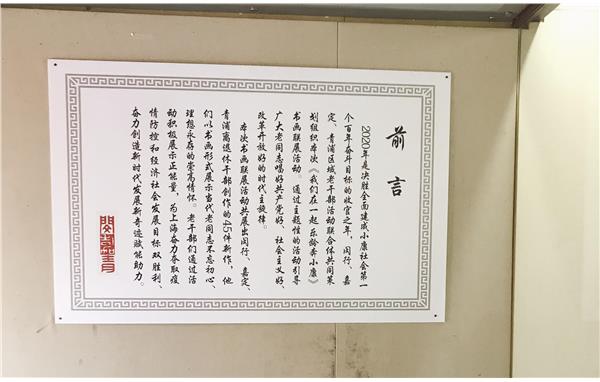 前言
2020年是决胜全面建成小康社会第一
个百年奋斗目标的收官之年，闵行、嘉
定、青浦区域老干部活动联合体共同策
划组织本次《我们在一起 乐龄奔小康》
书画联展活动。通过主题性的活动引导
广大老同志唱好共产党好、社会主义好、
改革开放好的时代主旋律。
本次书画联展活动共展出闵行、嘉定、
青浦离退休干部创作的45件新作，他
们以书画形式展示当代老同志不忘初心、
理想永存的崇高情怀。老干部们通过活
动积极展示正能量，为上海奋力夺取疫
情防控和经济社会发展目标双胜利、
奋力创造新时代发展新奇迹赋能助力。